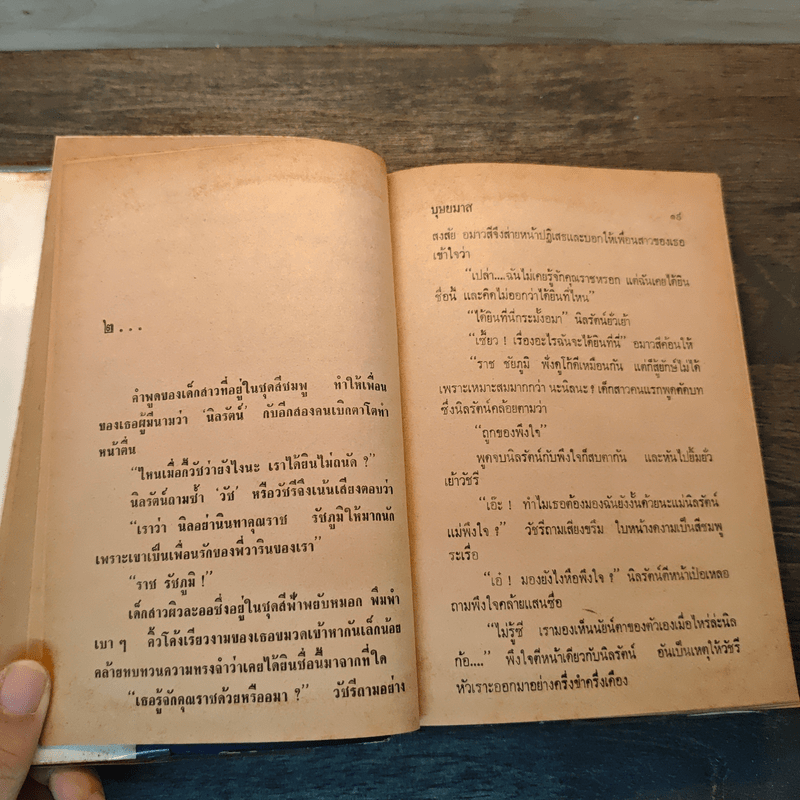 ๒...
คำพูดของเด็กสาวที่อยู่ในชุดสีชมพู ทำให้เพื่อน
ของเธอผู้มีนามว่า ‘นิลรัตน์’ กับอีกสองคนเบิกตาโตทำ
หน้าตื่น
“ไหนเมื่อกี้วัชว่ายังไงนะ เราได้ยินไม่ถนัด ?”
นิลรัตน์ถามซ้ำ ‘วัช’ หรือวัชรีจึงเน้นเสียงตอบว่า
“เราว่า นิลอย่านินทาคุณราช รัชภูมิให้มากนัก
เพราะเขาเป็นเพื่อนรักของพี่วารินของเรา”
“ราช รัชภูมิ !”
เด็กสาวผิวละออซึ่งอยู่ในชุดสีฟ้าพยับหมอก พึมพำ
เบา ๆ คิ้วโค้งเรียวงามของเธอขมวดเข้าหากันเล็กน้อย
คล้ายทบทวนความทรงจำว่าเคยได้ยินชื่อนี้มาจากที่ใด
“เธอรู้จักคุณราชด้วยหรืออมา ?” วัชรีถามอย่าง
บุษยมาส ๑๙
สงสัย อมาวสีจึงส่ายหน้าปฏิเสธและบอกให้เพื่อนสาวของเธอ
เข้าใจว่า
“เปล่า....ฉันไม่เคยรู้จักคุณราชหรอก แต่ฉันเคยได้ยิน
ชื่อนี้ และคิดไม่ออกว่าได้ยินที่ไหน”
“ได้ยินที่นี่กระมั้งอมา” นิลรัตน์ยั่วเย้า
“เชี้ยว ! เรื่องอะไรฉันจะได้ยินที่นี่” อมาวสีค้อนให้
“ราช ชัยภูมิ ฟังดูโก้ดีเหมือนกัน แต่ก็สู้ยักษ์ไม่ได้
เพราะเหมาะสมมากกว่า นะนิลนะ ? เด็กสาวคนแรกพูดตัดบท
ซึ่งนิลรัตน์คล้อยตามว่า
“ถูกของพึงใจ”
พูดจบนิลรัตน์กับพึงใจก็สบตากัน และหันไปยิ้มยั่ว
เย้าวัชรี
“เอ๊ะ ! ทำไมเธอต้องมองฉันยังงั้นด้วยนะแม่นิลรัตน์
แม่พึงใจ ?” วัชรีถามเสียงขรึม ใบหน้างดงามเป็นสีชมพู
ระเรื่อ
“เอ๋ ! มองยังไงหือพึงใจ ?” นิลรัตน์ตีหน้าเป๋อเหลอ
ถามพึงใจคล้ายแสนซื่อ
“ไม่รู้ซี เรามองเห็นนัยน์ตาของตัวเองเมื่อไหร่ล่ะนิล
ก้อ....” พึงใจตีหน้าเดียวกับนิลรัตน์ อันเป็นเหตุให้วัชรี
หัวเราะออกมาอย่างครึ่งขำครึ่งเคือง